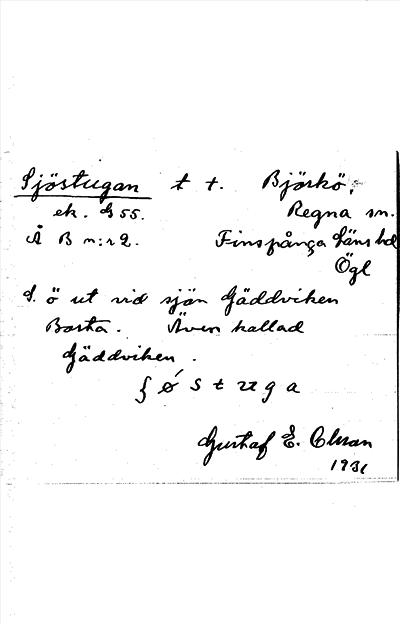 Sjöstugan t t. Björkö,
ek. G 55. Regna sn.
Å B n:r 2. Finspånga läns hd
Ögl
S. ö ut vid sjön Gäddviken
Borta. Även kallad
Gäddviken.
ʃ ǿ s t u g a
Gustaf E. Olsson
1931